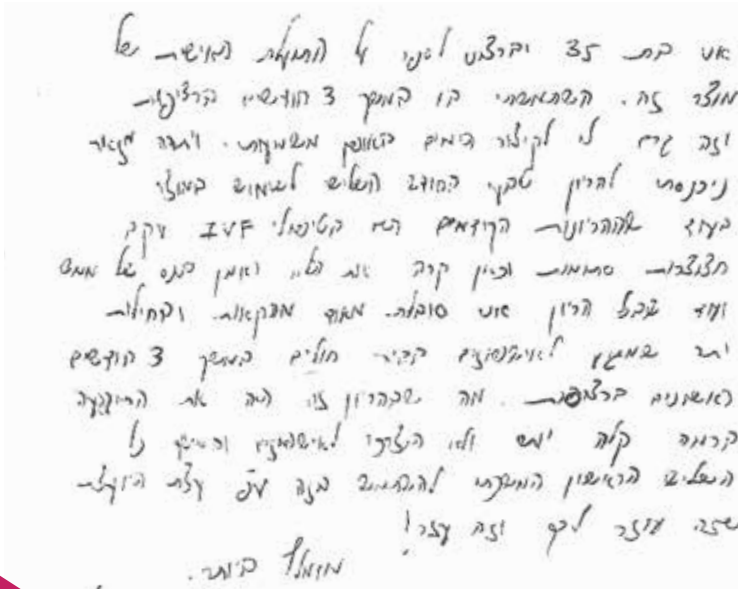 אני בת 35 וברצוני לספר על החוויה האישית של
מוצר זה. השתמשתי בו במשך 3 חודשים ברציפות
וזה גרם לי לקיצור הימים באופן משמעותי. ויתרה מזאת
ניכנסתי להריון טבעי בחודש השלישי לשימוש במוצר
בעוד שההריונות הקודמים היו בטיפולי IVF עקב
חצוצרות סתומות וכיון קרה את הלא יאומן בנס של ממש
ועוד שבכל הריון אני סובלת מאוד מהקאות ובחילות
יתר שמגיע לאישפוזים בבית חולים במשך 3 חודשים
ראשונים ברציפות. מה שבהריון זה היה את התופעה
ברמה קלה יותר ולא הוצרכתי לאישפוזים והיות
השליש הראשון המשכתי להשתמש בזה עפ עצת היועצת
שזה עוזר לכך וזה עזר!
מומלץ ביותר.